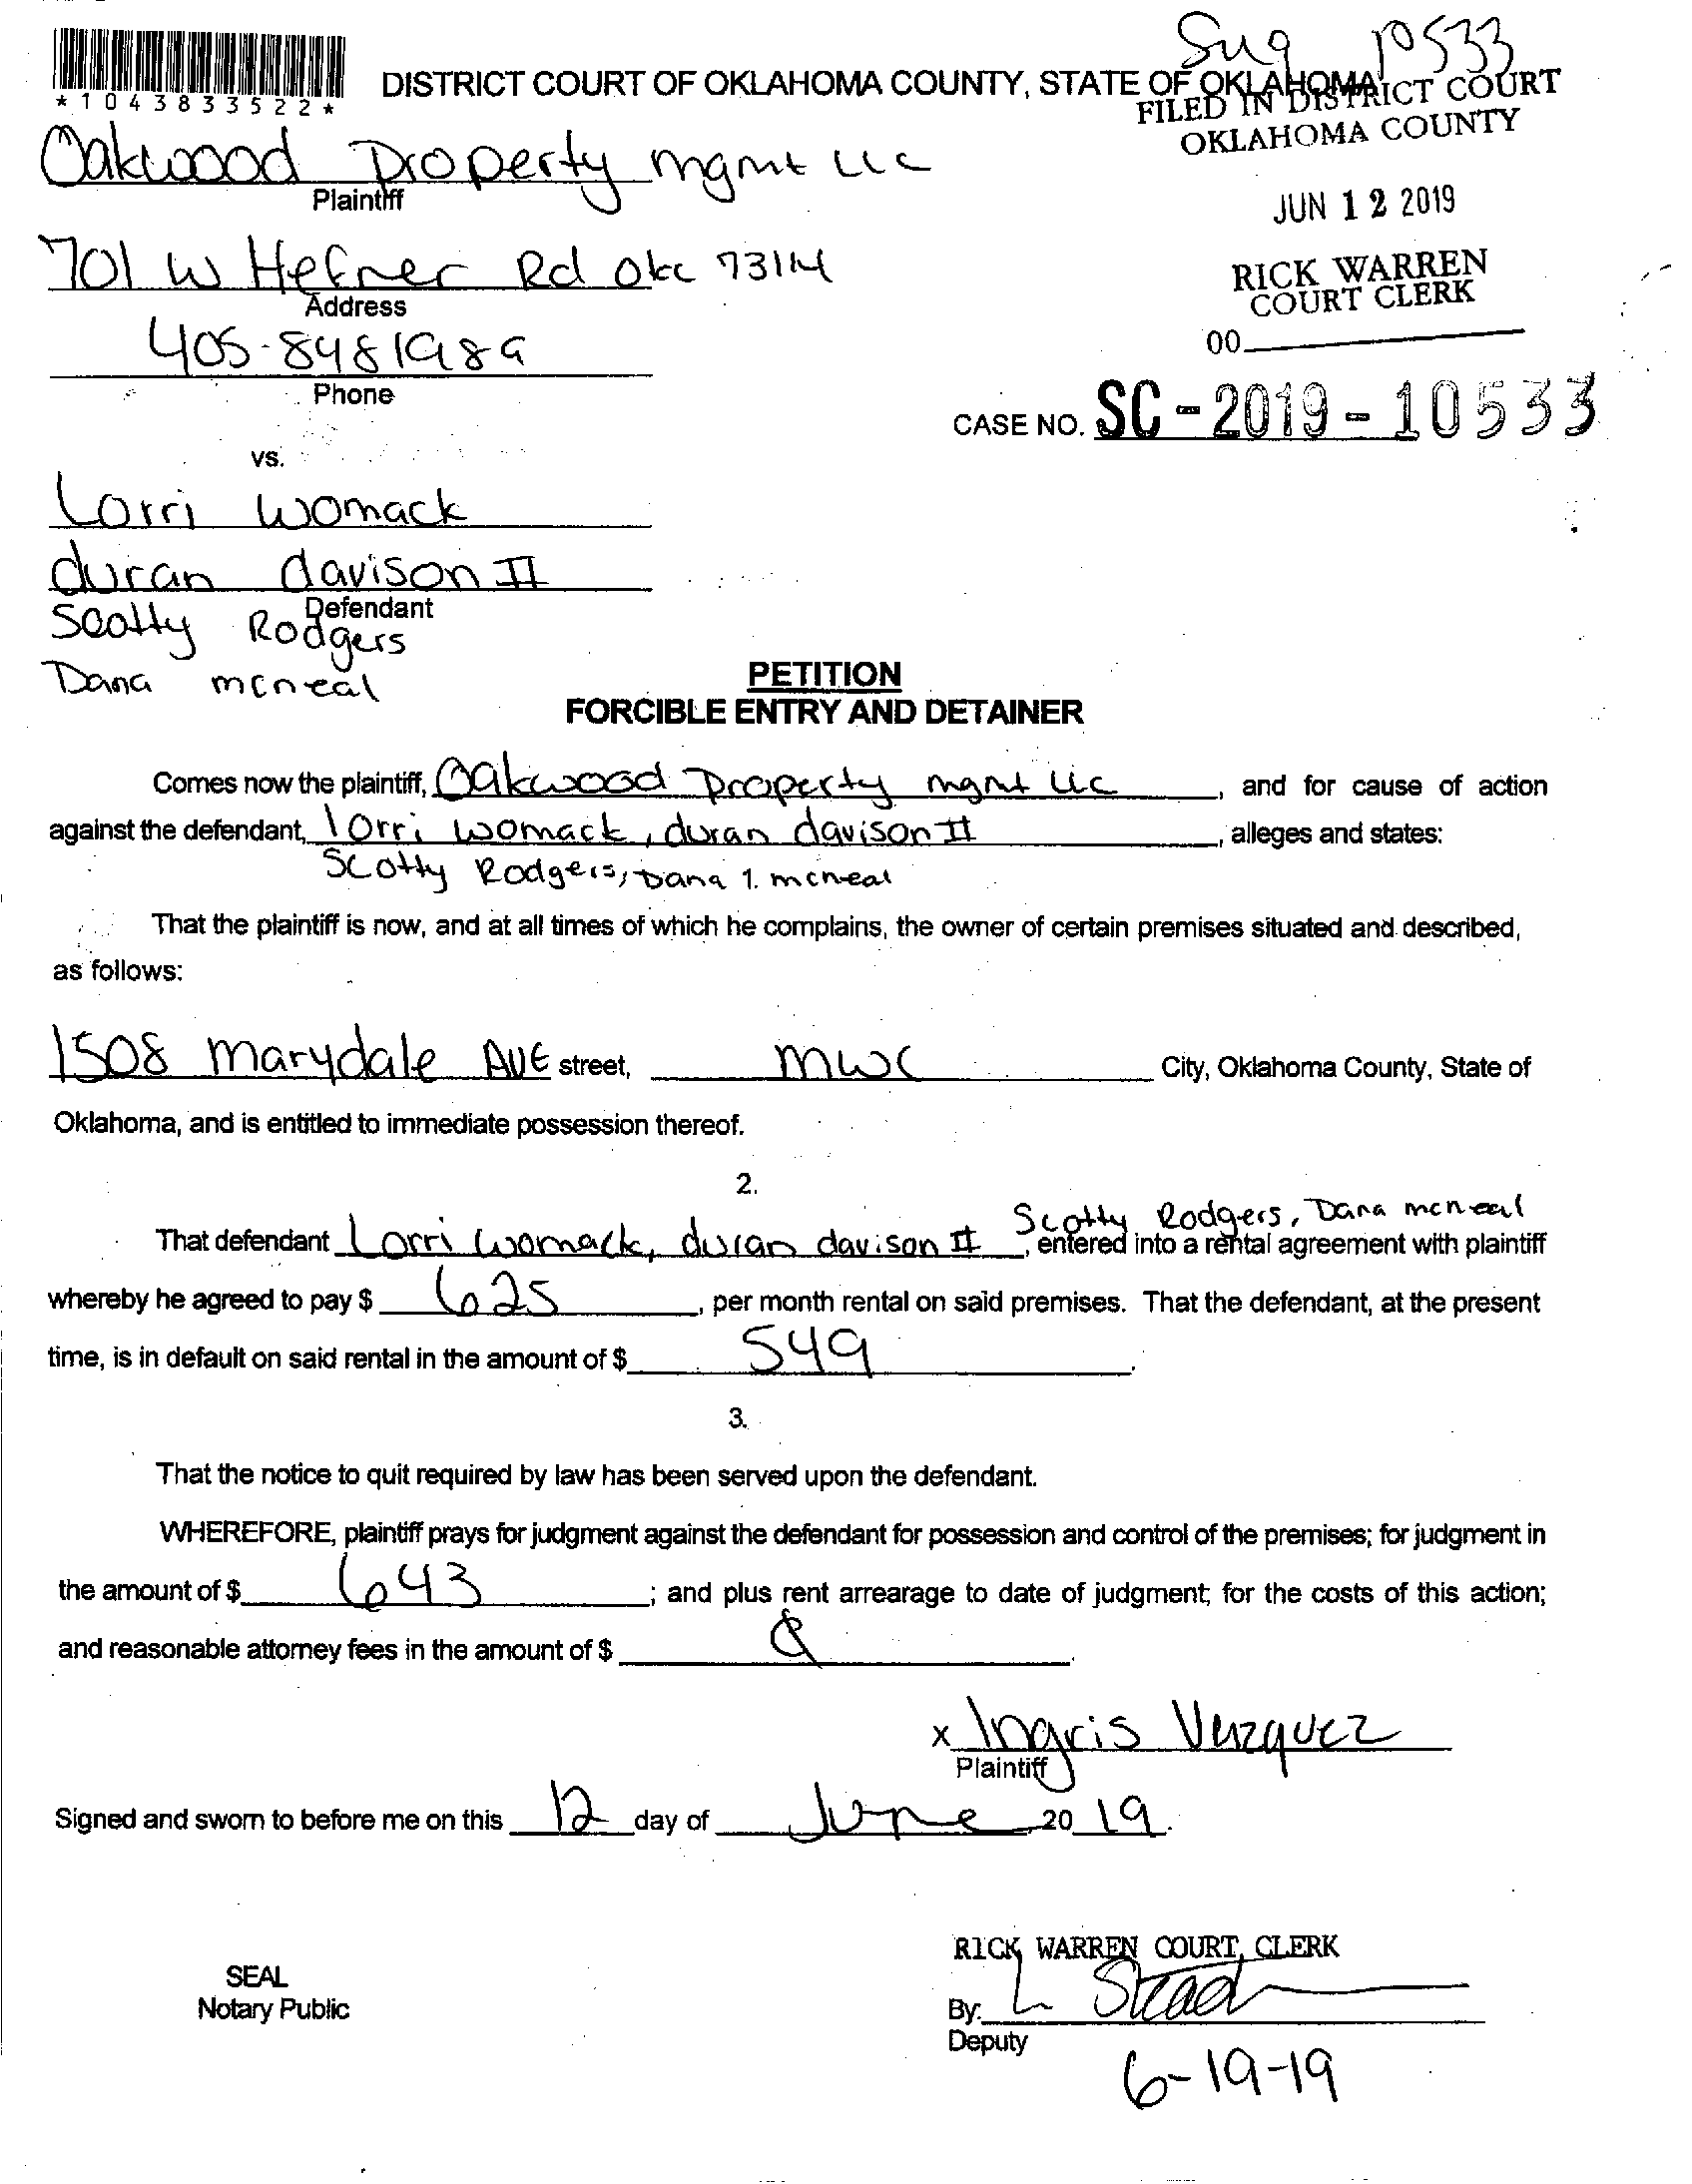 Sug 10533
*1043833522*
DISTRICT COURT OF OKLAHOMA COUNTY, STATE OF OKLAHOMA
FILED IN DISTRICT COURT
OKLAHOMA COUNTY
Oakwood Property mgmt LLC
Plaintiff
JUN 12 2019
701 W Hefner Rd Okc 73114
Address
RICK WARREN
COURT CLERK
405-8481989
Phone
00
CASE NO. SC-2019-10533
vs.
Lorri Womack
duran davison II
Defendant
Scotty Rodgers
Dana mcneal
PETITION
FORCIBLE ENTRY AND DETAINER
Comes now the plaintiff, Oakwood Property mgmt LLC, and for cause of action
against the defendant, lorri womack, duran davison II, alleges and states:
Scotty Rodgers, Dana 1. mcneal
That the plaintiff is now, and at all times of which he complains, the owner of certain premises situated and described,
as follows:
1508 Marydale AVE street, MWC City, Oklahoma County, State of
Oklahoma, and is entitled to immediate possession thereof.
2.
Scotty Rodgers, Dana mcneal
That defendant Lorri womack, duran davison II, entered into a rental agreement with plaintiff
whereby he agreed to pay $ 625, per month rental on said premises. That the defendant, at the present
time, is in default on said rental in the amount of $ 549.
3.
That the notice to quit required by law has been served upon the defendant.
WHEREFORE, plaintiff prays for judgment against the defendant for possession and control of the premises; for judgment in
the amount of $ 643; and plus rent arrearage to date of judgment; for the costs of this action;
and reasonable attorney fees in the amount of $
x Ingris Vazquez
Plaintiff
Signed and sworn to before me on this 12 day of June, 20 19.
RICK WARREN COURT CLERK
SEAL
Notary Public
By: L Stead
Deputy
6-19-19